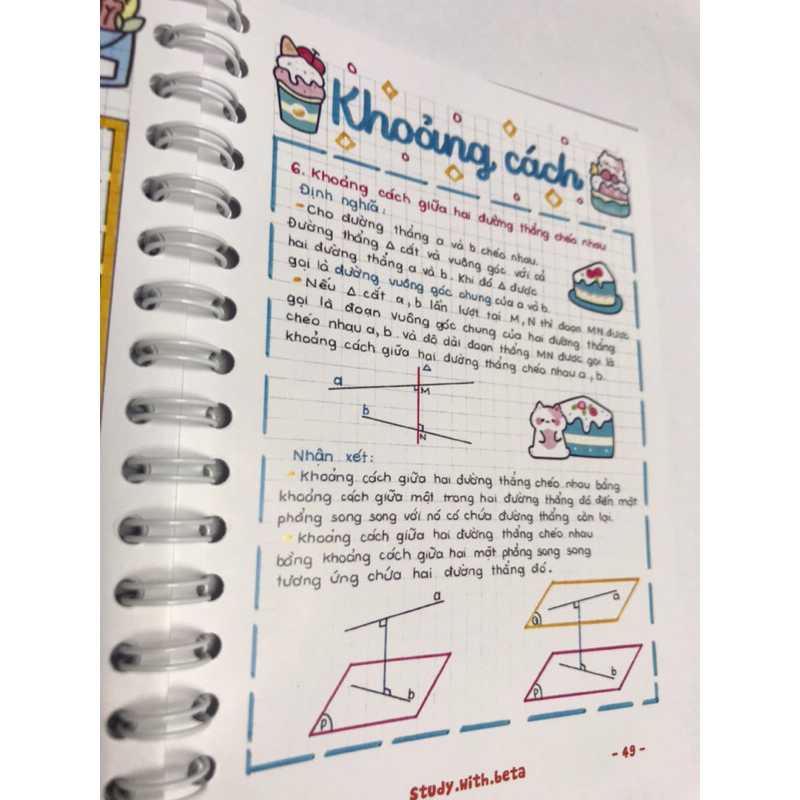 Khoảng cách
6. Khoảng cách giữa hai đường thẳng chéo nhau
Định nghĩa:
- Cho đường thẳng a và b chéo nhau.
Đường thẳng Δ cắt và vuông góc với cả
hai đường thẳng a và b. Khi đó Δ được
gọi là đường vuông góc chung của a và b.
- Nếu Δ cắt a, b lần lượt tại M, N thì đoạn MN được
gọi là đoạn vuông góc chung của hai đường thẳng
chéo nhau a, b và độ dài đoạn thẳng MN được gọi là
khoảng cách giữa hai đường thẳng chéo nhau a, b.
Δ
a
M
b
N
Nhận xét:
- Khoảng cách giữa hai đường thẳng chéo nhau bằng
khoảng cách giữa một trong hai đường thẳng đó đến mặt
phẳng song song với nó có chứa đường thẳng còn lại.
- Khoảng cách giữa hai đường thẳng chéo nhau
bằng khoảng cách giữa hai mặt phẳng song song
tương ứng chứa hai đường thẳng đó.
a
b
P
a
Q
b
P
- 49 -
study.with.beta